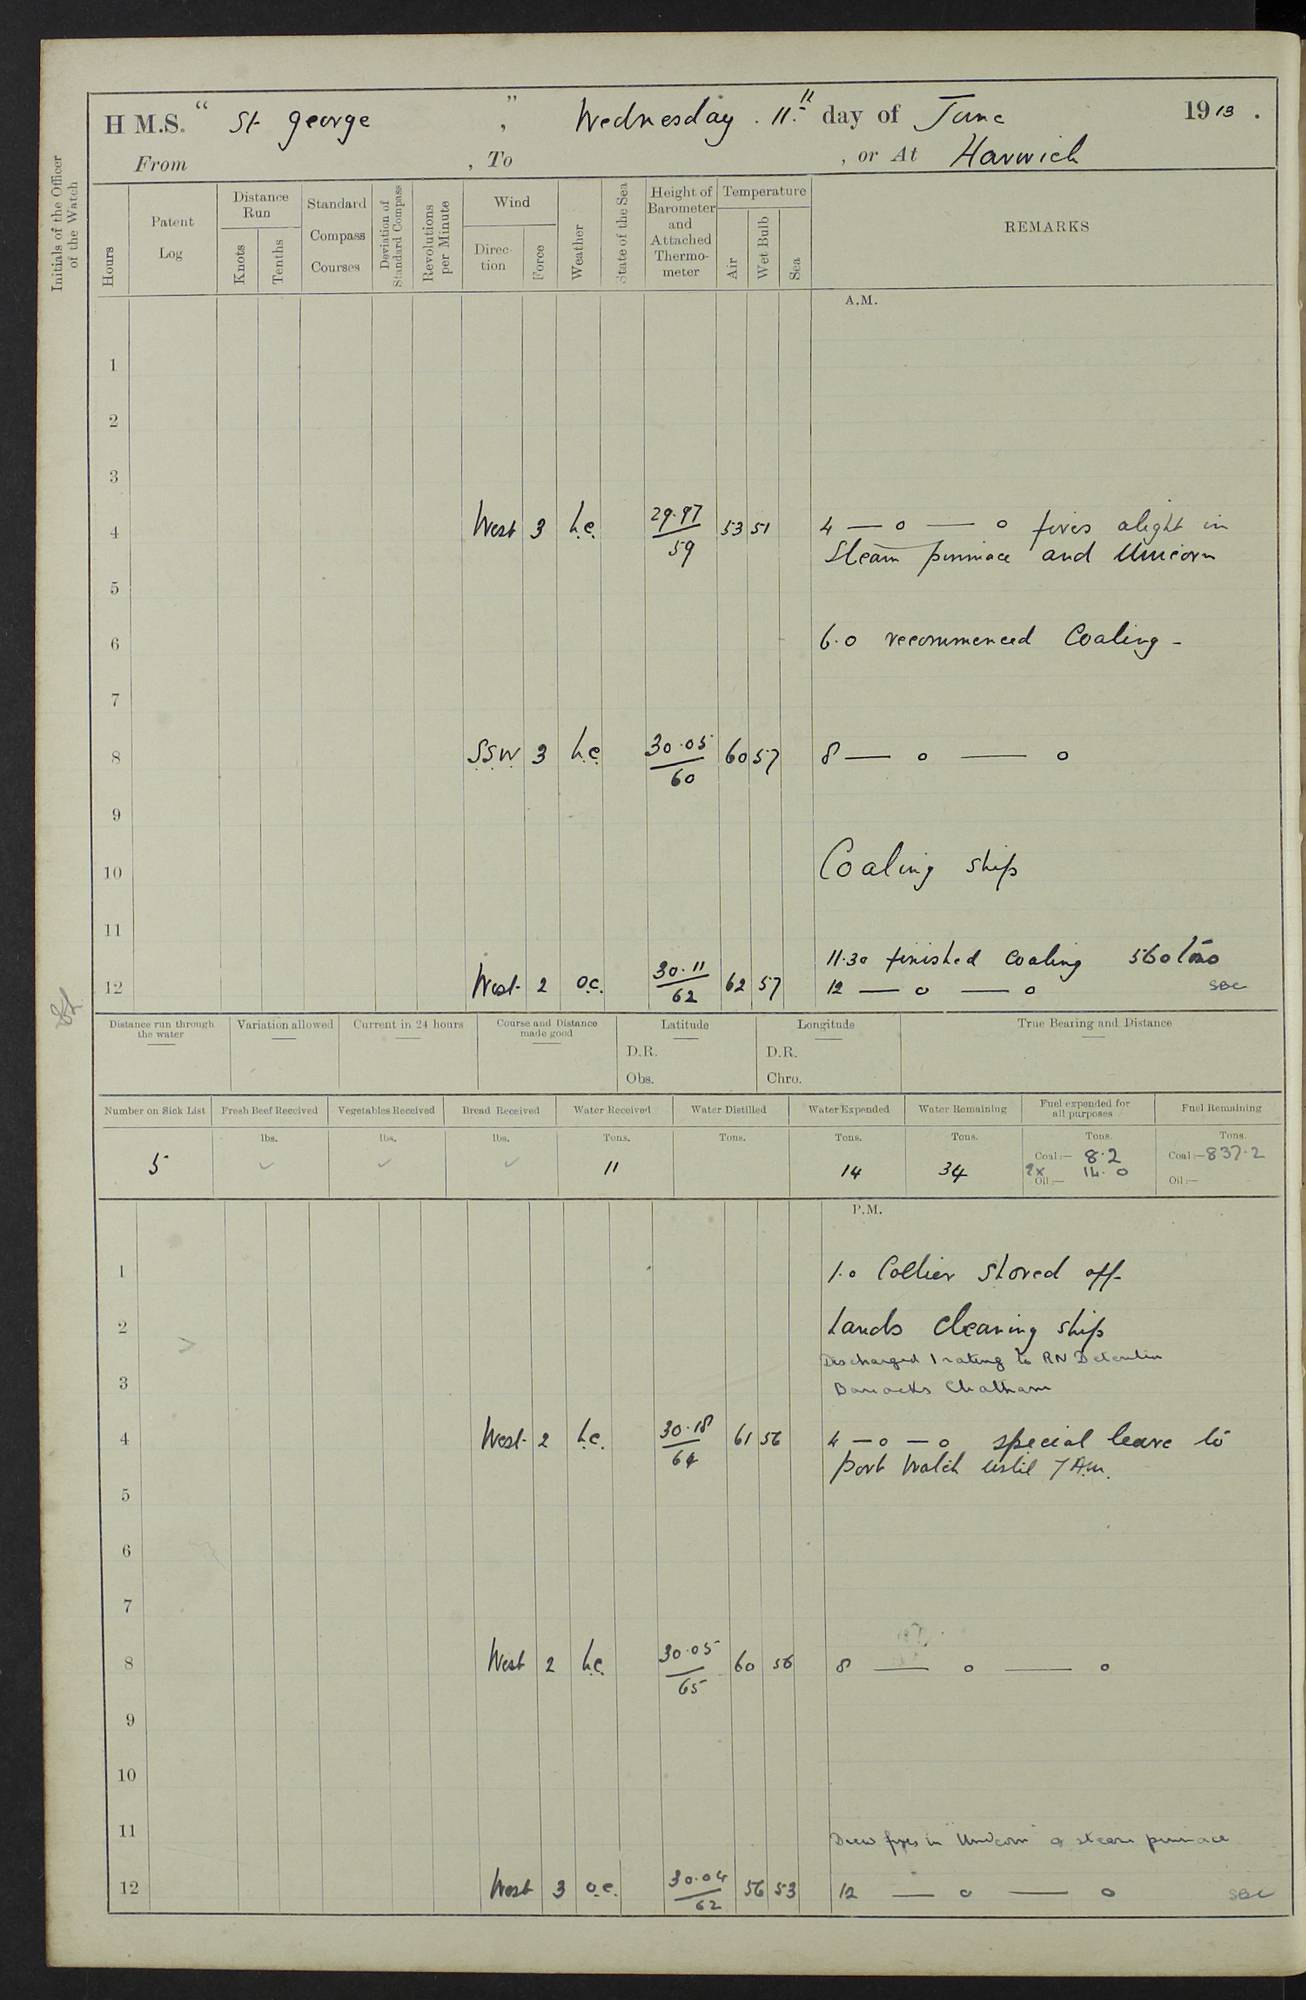 H M.S. " St. George ", Wednesday . 11.th day of June 1913 .
From , To , or At Harwich
Initials of the Officer of the Watch
Hours
Patent Log
Distance Run
Knots
Tenths
Standard Compass Courses
Deviation of Standard Compass
Revolutions per Minute
Wind
Direction
Force
Weather
State of the Sea
Height of Barometer and Attached Thermometer
Temperature
Air
Wet Bulb
Sea
REMARKS
A.M.
1
2
3
4 West 3 b.c. 29.97/59 53 51 4 — o — o fires alight in
Steam pinnace and Unicorn
5
6 6.0 recommenced Coaling -
7
8 S.S.W. 3 b.c. 30.05/60 60 57 8 — o — o
9
10 Coaling ship
11
11.30 finished coaling 560 tons
12 West 2 o.c. 30.11/62 62 57 12 — o — o SBC
Distance run through the water
Variation allowed
Current in 24 hours
Course and Distance made good
Latitude
D.R.
Obs.
Longitude
D.R.
Chro.
True Bearing and Distance
Number on Sick List Fresh Beef Received Vegetables Received Bread Received Water Received Water Distilled Water Expended Water Remaining Fuel expended for all purposes Fuel Remaining
lbs. lbs. lbs. Tons. Tons. Tons. Tons. Tons. Tons.
5 ✓ ✓ ✓ 11 14 34 Coal :— 8.2 Coal :— 837.2
14.0
Oil :— Oil :—
P.M.
1 1.0 Collier shoved off
2 hands cleaning ship
Discharged 1 rating to RN Detention
3 Barracks Chatham
4 West 2 b.c. 30.18/64 61 56 4 — o — o special leave to
port watch until 7 A.m.
5
6
7
8 West 2 b.c. 30.05/65 60 56 8 — o — o
9
10
11 Drew fires in "Unicorn" & steam pinnace
12 West 3 o.c. 30.04/62 56 53 12 — o — o SBC